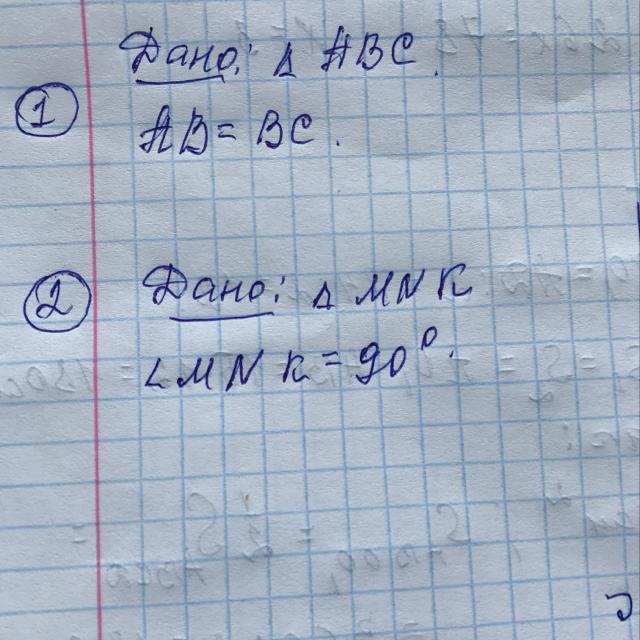 Дано: Δ ABC.
1
AB = BC.
2
Дано: Δ MNK
∠MNK = 90°.